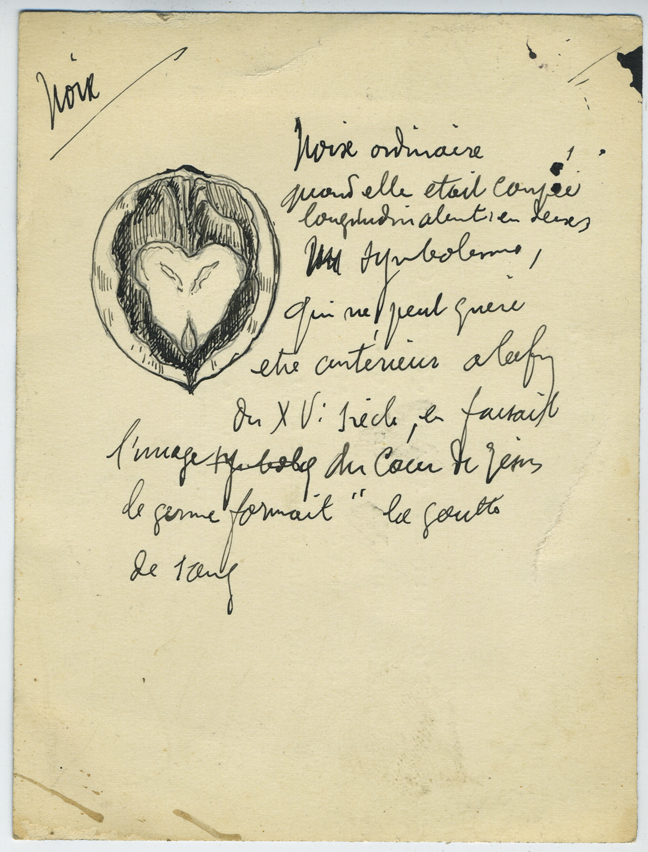 Noix
Noix ordinaire
quand elle était coupée
longitudinalent en deux
un symbolisme,
qui ne peut guère
etre antérieur a la fin
du XVe siècle, en faisait
l'image symboliq du Cœur de Jésus
le germe formait " la goutte
de sang